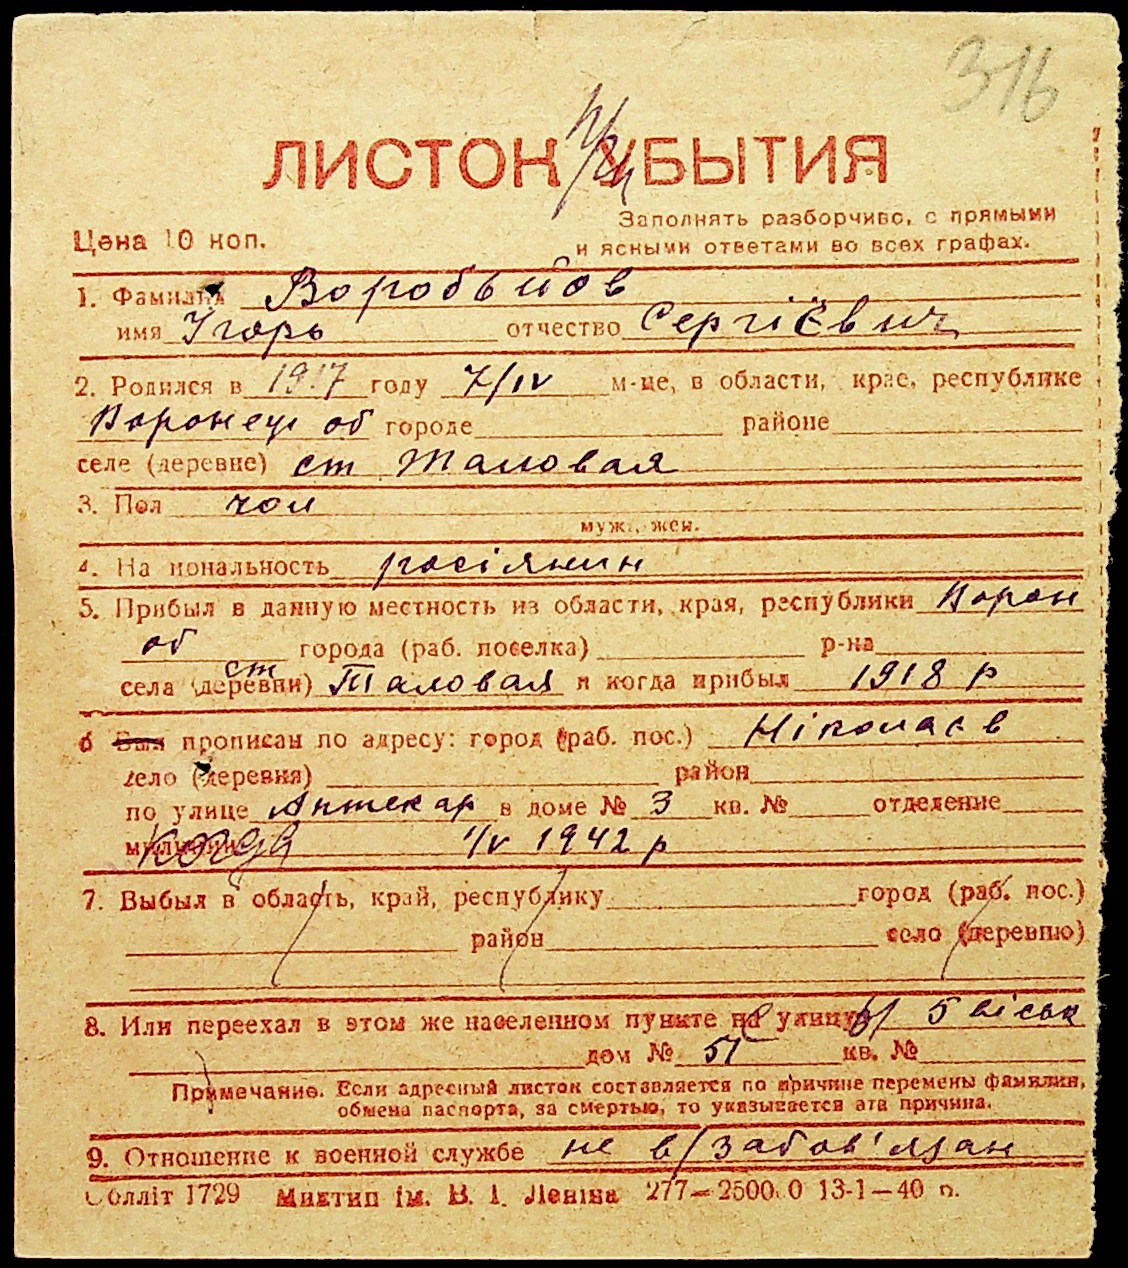 316
ЛИСТОК УБЫТИЯ
Заполнять разборчиво, с прямыми
Цена 10 коп.
и ясными ответами во всех графах.
1. Фамилия Воробьйов
имя Ігорь отчество Сергієвич
2. Родился в 1917 году 7/IV м-це, в области, крае, республике
Воронеж об городе районе
селе (деревне) ст Таловая
3. Пол чол
муж., жен.
4. Национальность росіянин
5. Прибыл в данную местность из области, края, республики Ворон
об города (раб. поселка) р-на
села (деревни) ст Таловая и когда прибыл 1918 р
6 Был прописан по адресу: город (раб. пос.) Ніколаєв
село (деревня) район
по улице Аптекар в доме № 3 кв. № отделение
милиции когда 1/V 1942 р
7. Выбыл в область, край, республику город (раб. пос.)
район село (деревню)
8. Или переехал в этом же населенном пункте на улицу 5 війсь
дом № 51 кв. №
Примечание. Если адресный листок составляется по причине перемены фамилии,
обмена паспорта, за смертью, то указывается эта причина.
9. Отношение к военной службе не в/забов'язан
Облліт 1729 Миктип ім. В. І. Леніна 277—2500.0 13-1—40 р.